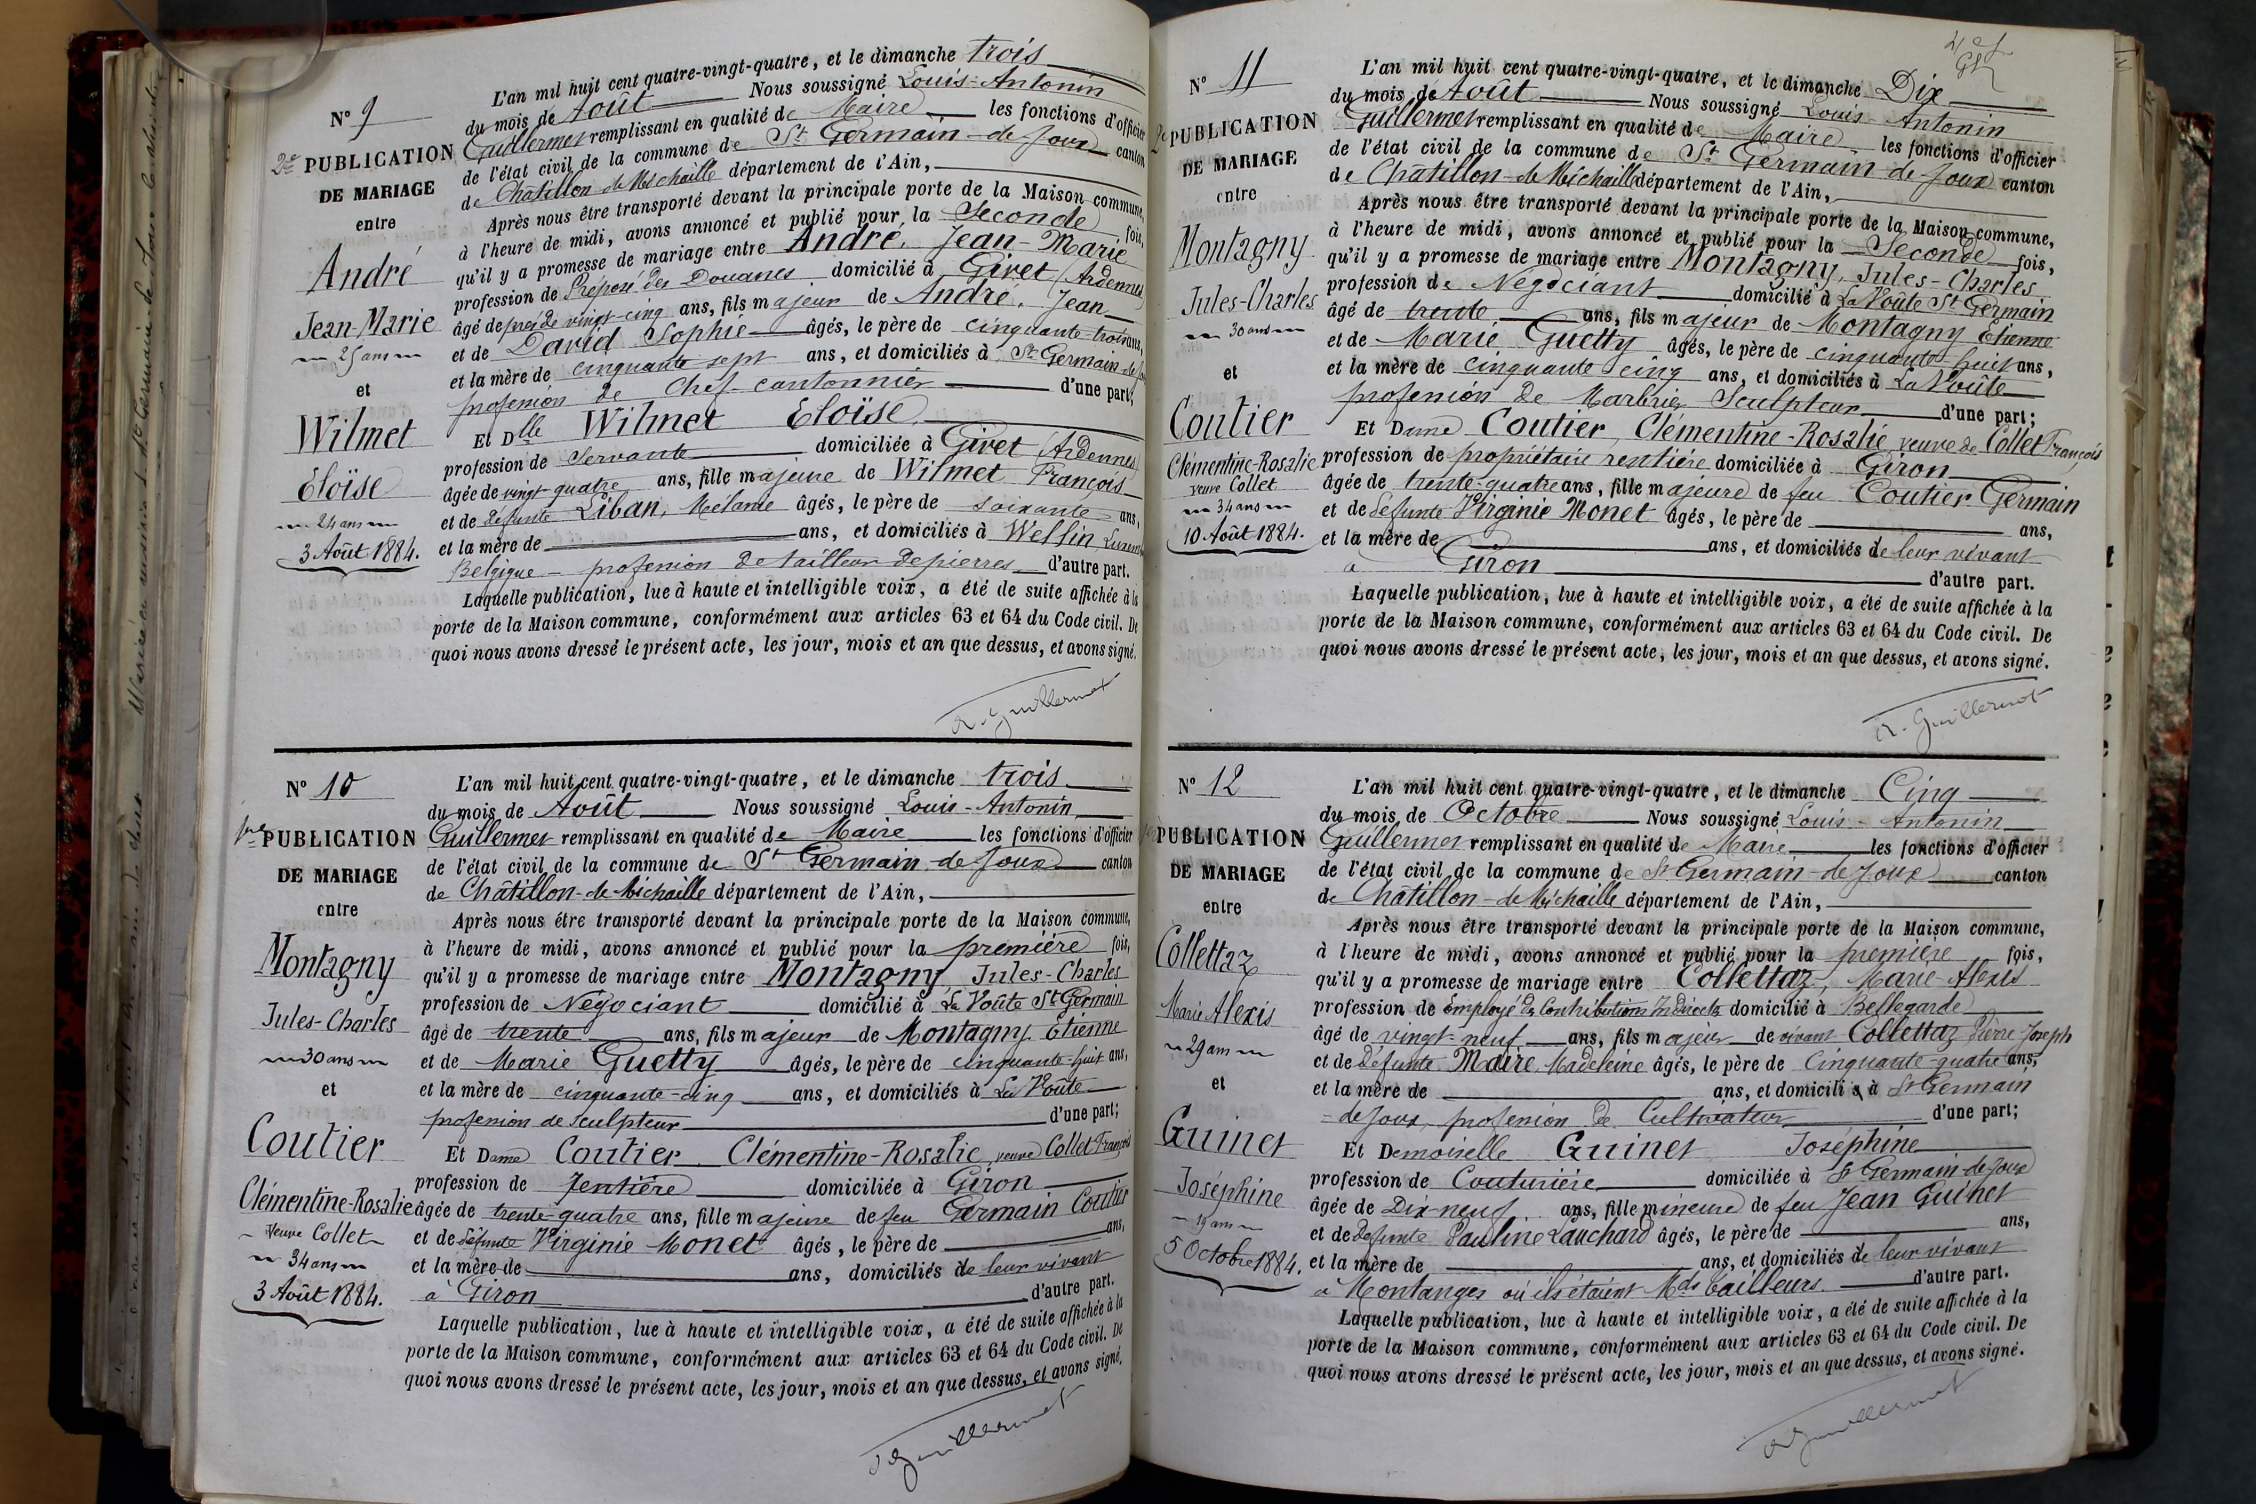 N° 9
2e PUBLICATION
DE MARIAGE
entre
André
Jean-Marie
25 ans
et
Wilmet
Eloïse
24 ans
3 Août 1884.
L'an mil huit cent quatre-vingt-quatre, et le dimanche trois
du mois de Août Nous soussigné Louis-Antonin
Guillermet remplissant en qualité de Maire les fonctions d'officier
de l'état civil de la commune de St Germain-de-Joux canton
de Châtillon-de-Michaille département de l'Ain,
Après nous être transporté devant la principale porte de la Maison commune,
à l'heure de midi, avons annoncé et publié pour la Seconde fois,
qu'il y a promesse de mariage entre André, Jean-Marie
profession de Préposé des Douanes domicilié à Givet (Ardennes)
âgé de près de vingt-cinq ans, fils majeur de André, Jean
et de David Sophie âgés, le père de cinquante-trois ans,
et la mère de cinquante sept ans, et domiciliés à St Germain-de-Joux
profession de Chef cantonnier d'une part;
Et Dlle Wilmet Eloïse
profession de Servante domiciliée à Givet (Ardennes)
âgée de vingt-quatre ans, fille majeure de Wilmet François
et de défunte Liban, Mélanie âgés, le père de soixante ans,
et la mère de ans, et domiciliés à Wellin,
Belgique - profession de tailleur de pierres d'autre part.
Laquelle publication, lue à haute et intelligible voix, a été de suite affichée à la
porte de la Maison commune, conformément aux articles 63 et 64 du Code civil. De
quoi nous avons dressé le présent acte, les jour, mois et an que dessus, et avons signé.
A. Guillermet
N° 10
1re PUBLICATION
DE MARIAGE
entre
Montagny
Jules-Charles
30 ans
et
Coutier
Clémentine-Rosalie
Veuve Collet
34 ans
3 Août 1884.
L'an mil huit cent quatre-vingt-quatre, et le dimanche trois
du mois de Août Nous soussigné Louis-Antonin
Guillermet remplissant en qualité de Maire les fonctions d'officier
de l'état civil de la commune de St Germain-de-Joux canton
de Châtillon-de-Michaille département de l'Ain,
Après nous être transporté devant la principale porte de la Maison commune,
à l'heure de midi, avons annoncé et publié pour la première fois,
qu'il y a promesse de mariage entre Montagny, Jules-Charles
profession de Négociant domicilié à La Voûte St Germain
âgé de trente ans, fils majeur de Montagny Etienne
et de Marie Guetty âgés, le père de cinquante-huit ans,
et la mère de cinquante-cinq ans, et domiciliés à La Voûte
profession de Sculpteur d'une part;
Et Dame Coutier Clémentine-Rosalie, veuve Collet François
profession de rentière domiciliée à Giron
âgée de trente-quatre ans, fille majeure de feu Germain Coutier
et de défunte Virginie Monet âgés, le père de ans,
et la mère de ans, domiciliés de leur vivant
à Giron d'autre part.
Laquelle publication, lue à haute et intelligible voix, a été de suite affichée à la
porte de la Maison commune, conformément aux articles 63 et 64 du Code civil. De
quoi nous avons dressé le présent acte, les jour, mois et an que dessus, et avons signé.
A. Guillermet
N° 11
2e PUBLICATION
DE MARIAGE
entre
Montagny
Jules-Charles
30 ans
et
Coutier
Clémentine-Rosalie
veuve Collet
34 ans
10 Août 1884.
L'an mil huit cent quatre-vingt-quatre, et le dimanche Dix
du mois de Août Nous soussigné Louis-Antonin
Guillermet remplissant en qualité de Maire les fonctions d'officier
de l'état civil de la commune de St Germain-de-Joux canton
de Châtillon-de-Michaille département de l'Ain,
Après nous être transporté devant la principale porte de la Maison commune,
à l'heure de midi, avons annoncé et publié pour la Seconde fois,
qu'il y a promesse de mariage entre Montagny, Jules-Charles
profession de Négociant domicilié à La Voûte St Germain
âgé de trente ans, fils majeur de Montagny Etienne
et de Marie Guetty âgés, le père de cinquante huit ans,
et la mère de cinquante cinq ans, et domiciliés à La Voûte
profession de Marbrier Sculpteur d'une part;
Et Dame Coutier, Clémentine-Rosalie, veuve de Collet François
profession de propriétaire rentière domiciliée à Giron
âgée de trente-quatre ans, fille majeure de feu Coutier Germain
et de défunte Virginie Monet âgés, le père de ans,
et la mère de ans, et domiciliés de leur vivant
à Giron d'autre part.
Laquelle publication, lue à haute et intelligible voix, a été de suite affichée à la
porte de la Maison commune, conformément aux articles 63 et 64 du Code civil. De
quoi nous avons dressé le présent acte, les jour, mois et an que dessus, et avons signé.
A. Guillermet
N° 12
PUBLICATION
DE MARIAGE
entre
Collettaz
Marie Alexis
29 ans
et
Guinet
Joséphine
19 ans
5 Octobre 1884.
L'an mil huit cent quatre-vingt-quatre, et le dimanche Cinq
du mois de Octobre Nous soussigné Louis-Antonin
Guillermet remplissant en qualité de Maire les fonctions d'officier
de l'état civil de la commune de St Germain-de-Joux canton
de Châtillon-de-Michaille département de l'Ain,
Après nous être transporté devant la principale porte de la Maison commune,
à l'heure de midi, avons annoncé et publié pour la première fois,
qu'il y a promesse de mariage entre Collettaz, Marie-Alexis
profession de Employé des Contributions Indirectes domicilié à Bellegarde
âgé de vingt-neuf ans, fils majeur de vivant Collettaz Pierre Joseph
et de Défunte Maire Madeleine âgés, le père de Cinquante-quatre ans,
et la mère de ans, et domicilié à St Germain
-de Joux, profession de Cultivateur d'une part;
Et Demoiselle Guinet Joséphine
profession de Couturière domiciliée à St Germain-de-Joux
âgée de Dix-neuf ans, fille mineure de feu Jean Guinet
et de Défunte Pauline Lauchard âgés, le père de ans,
et la mère de ans, et domiciliés de leur vivant
à Montanges où ils étaient Mds tailleurs d'autre part.
Laquelle publication, lue à haute et intelligible voix, a été de suite affichée à la
porte de la Maison commune, conformément aux articles 63 et 64 du Code civil. De
quoi nous avons dressé le présent acte, les jour, mois et an que dessus, et avons signé.
A. Guillermet